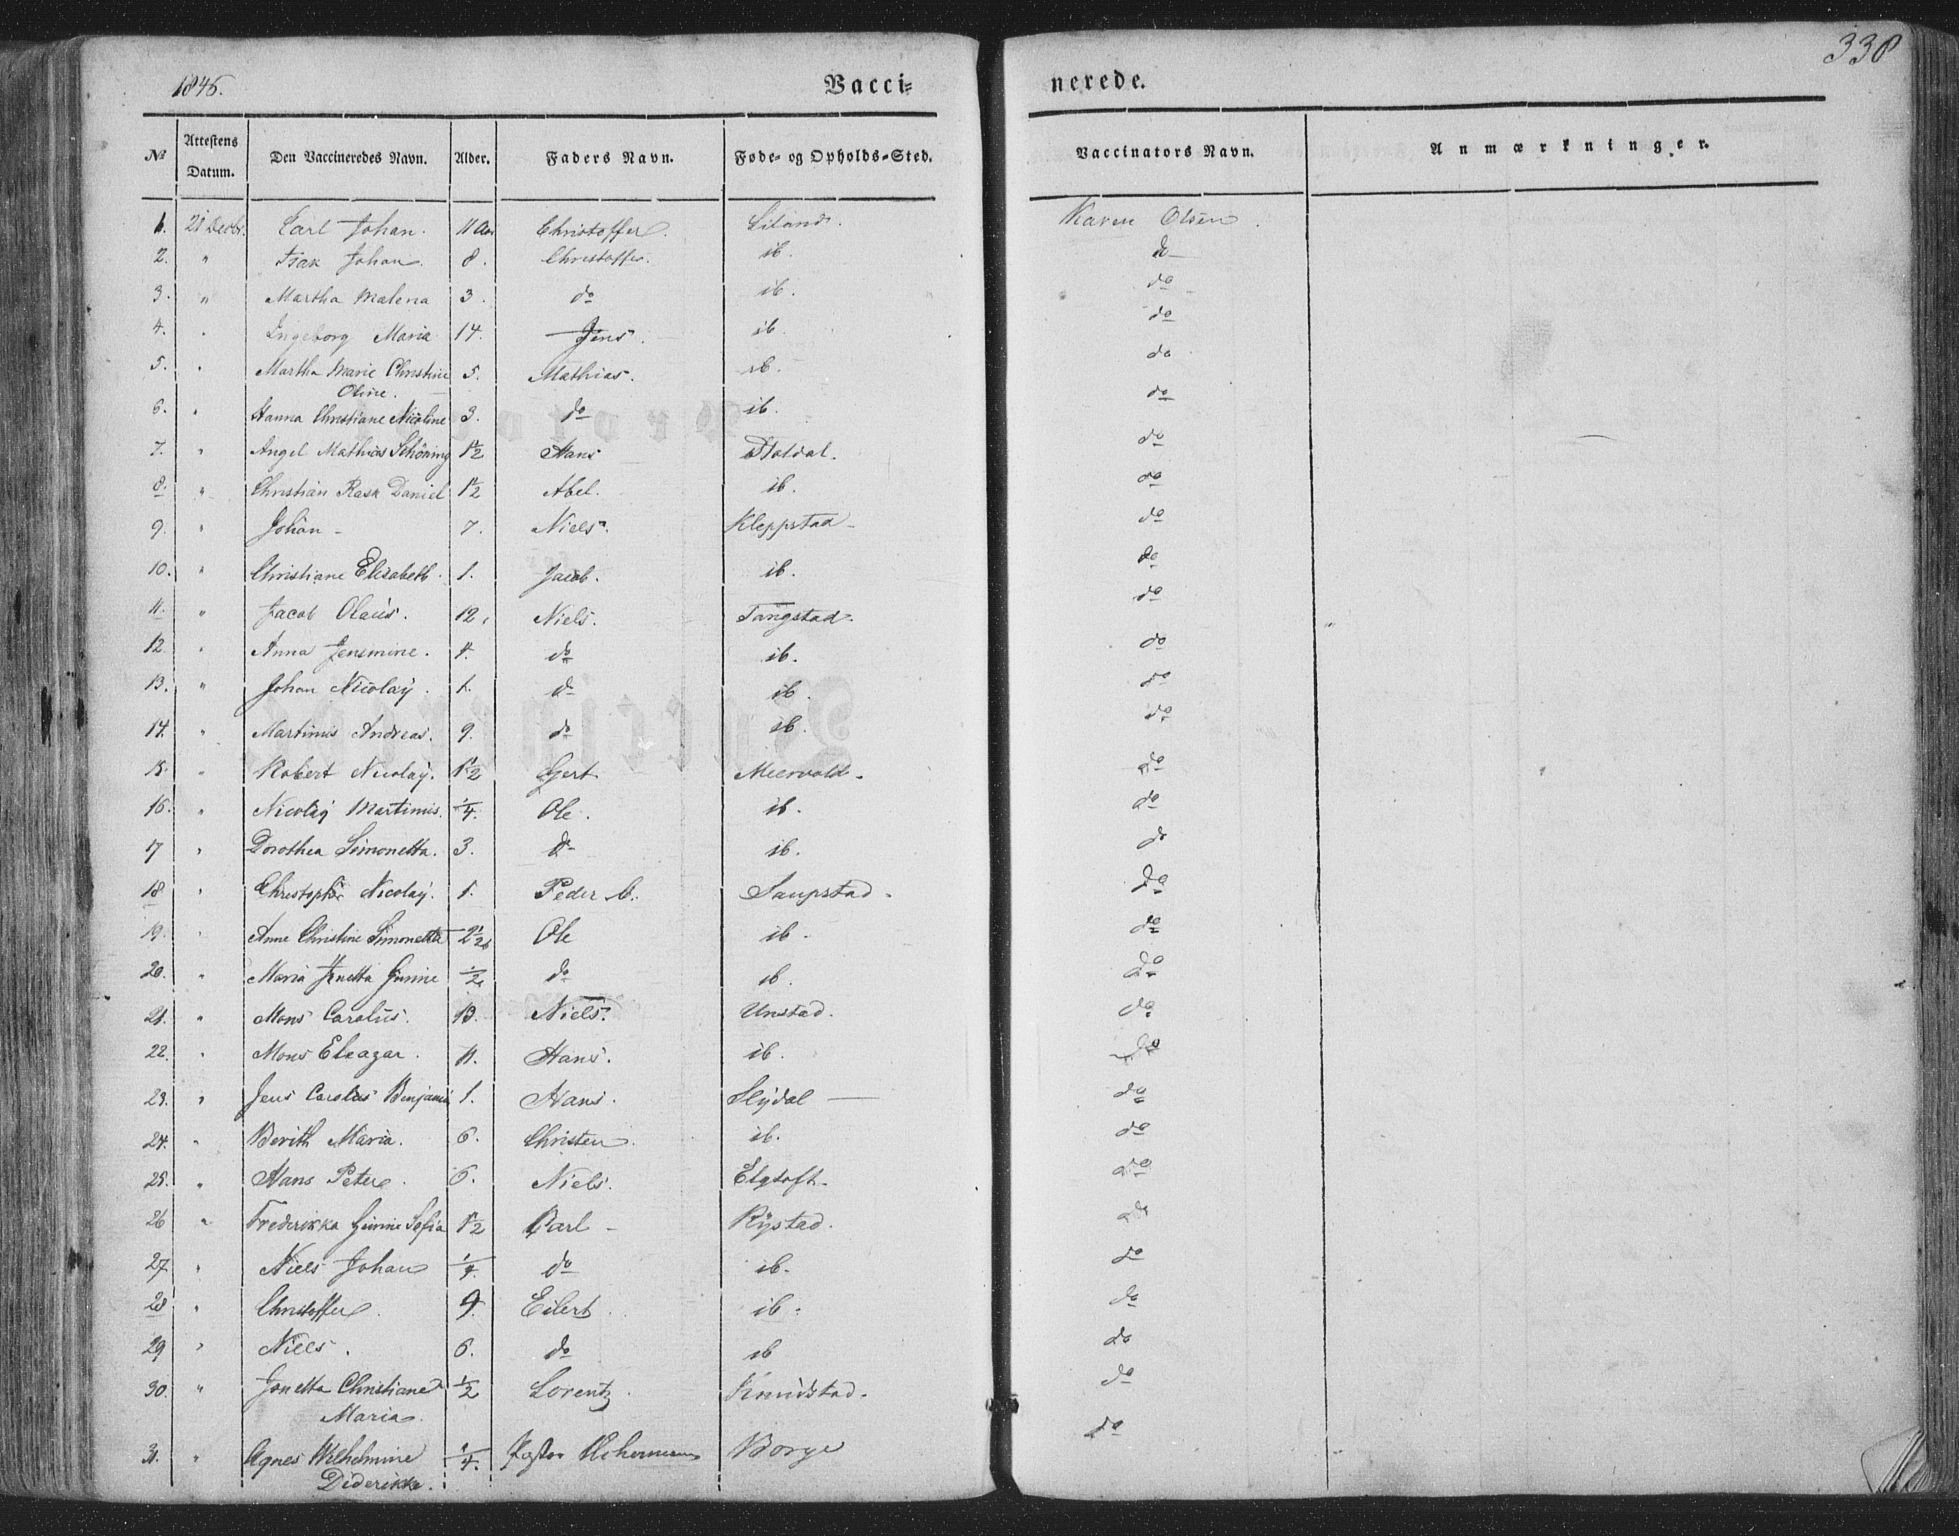 338
1846.
Vacci=
nerede.
No Attestens Datum. Den Vaccineredes Navn. Alder. Faders Navn. Føde- og Opholds-Sted. Vaccinators Navn. Anmærkninger.
1. 21 Decbr. Carl Johan. 11 Christoffer. Eiland. Karen Olsen.
2. " Isak Johan. 8. Christoffer. ib. do
3. " Martha Malena 3. do ib. do
4. " Ingeborg Maria 14. Jens. ib. do
5. " Martha Marie Christine 5. Mathias. ib. do
Oline.
6. " Hanna Christiane Nicoline 3. do ib. do
7. " Angel Mathias Schöning 1½ Hans do
8. " Christian Rask Daniel 1½ Abel. ib. do
9. " Johan - 7. Niels. Kleppstad do
10. " Christiane Elisabeth. 1. Jacob. ib. do
11. " Jacob Olaus. 12. Niels. Tangstad. do
12. " Anna Jensmine. 4. do ib. do
13. " Johan Nicolay. 1. do ib. do
14. " Martinus Andreas. 9. do ib. do
15. " Robert Nicolay. 1½ Gert Meervold. do
16. " Nicolay Martinus. ¼. Ole. ib. do
17 " Dorothea Simonetta. 3. do ib. do
18 " Christopher Nicolay. 1. Peder C. Saupstad. do
19. " Anne Christine Simonetta 2½ Ole ib. do
20. " Maria Jenetta Gunine ½ do ib. do
21. " Mons Carolus. 13. Niels. Unstad. do
22. " Mons Eleazar. 11. Hans. ib. do
23. " Jens Carolus Benjamin 1. Hans. Slydal do
24. " Berith Maria. 6. Christen. ib. do
25. " Hans Peter. 6. Niels. Elgtoft. do
26 " Frederikka Gunine Sofia 1½ Carl - Rystad. do
27 " Niels Johan ¼. do ib. do
28. " Christoffer. 9. Eilert. ib. do
29 " Niels. 6. do ib do
30. " Jonetta Christiane ½ Lorentz. Knudstad. do
Maria.
31. " Agnes Wilhelmine ¼. Pastor Borge do
Diderikke.